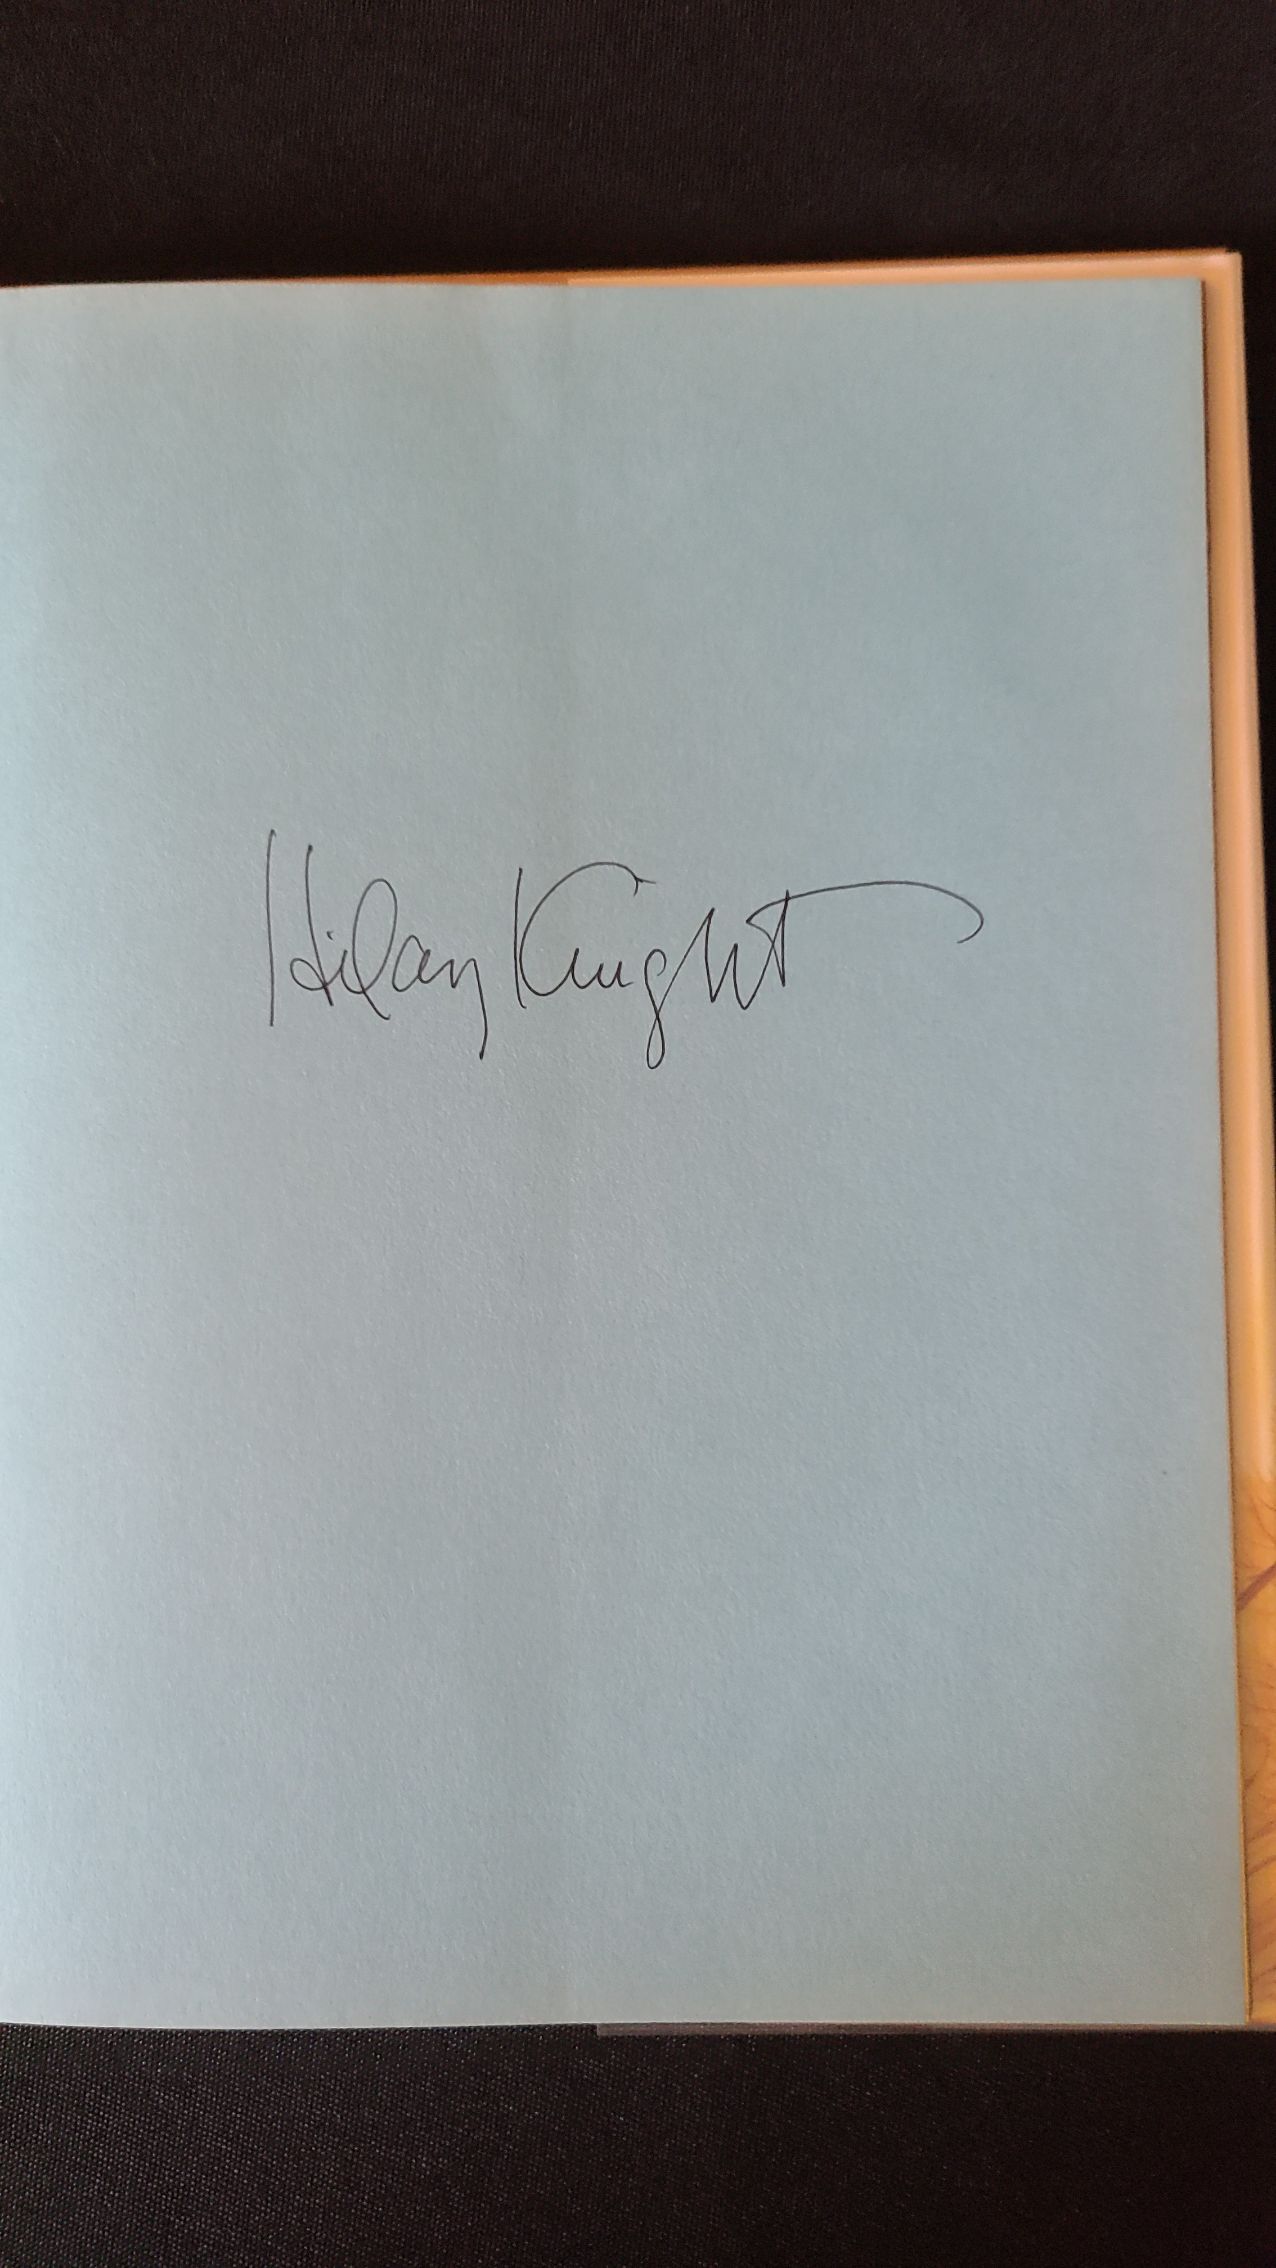 Hilary Knight